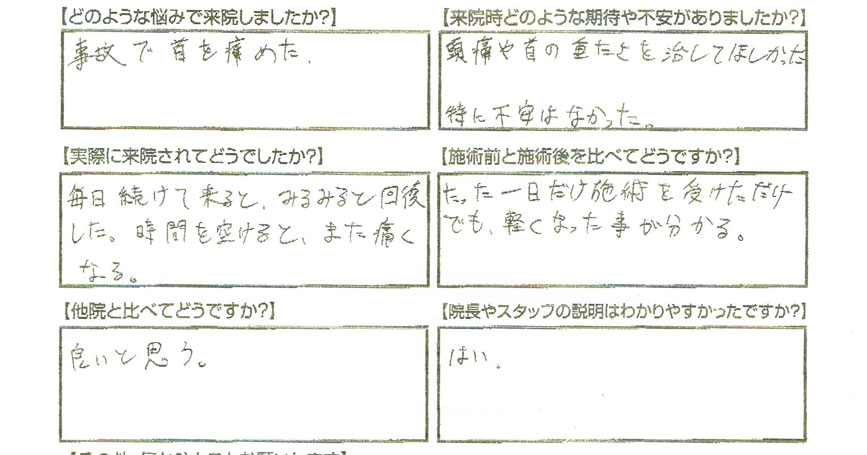 【どのような悩みで来院しましたか?】
事故で首を痛めた.
【来院時どのような期待や不安がありましたか?】
頭痛や首の重たさを治してほしかった
特に不安はなかった。
【実際に来院されてどうでしたか?】
毎日続けて来ると、みるみると回復
した。時間を空けると、また痛く
なる。
【施術前と施術後を比べてどうですか?】
たった一日だけ施術を受けただけ
でも、軽くなった事が分かる。
【他院と比べてどうですか?】
良いと思う。
【院長やスタッフの説明はわかりやすかったですか?】
はい.